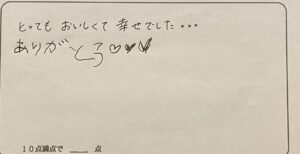 とっても おいしくて 幸せでした・・・
ありがとう♡♡♡
10点満点で ＿＿ 点